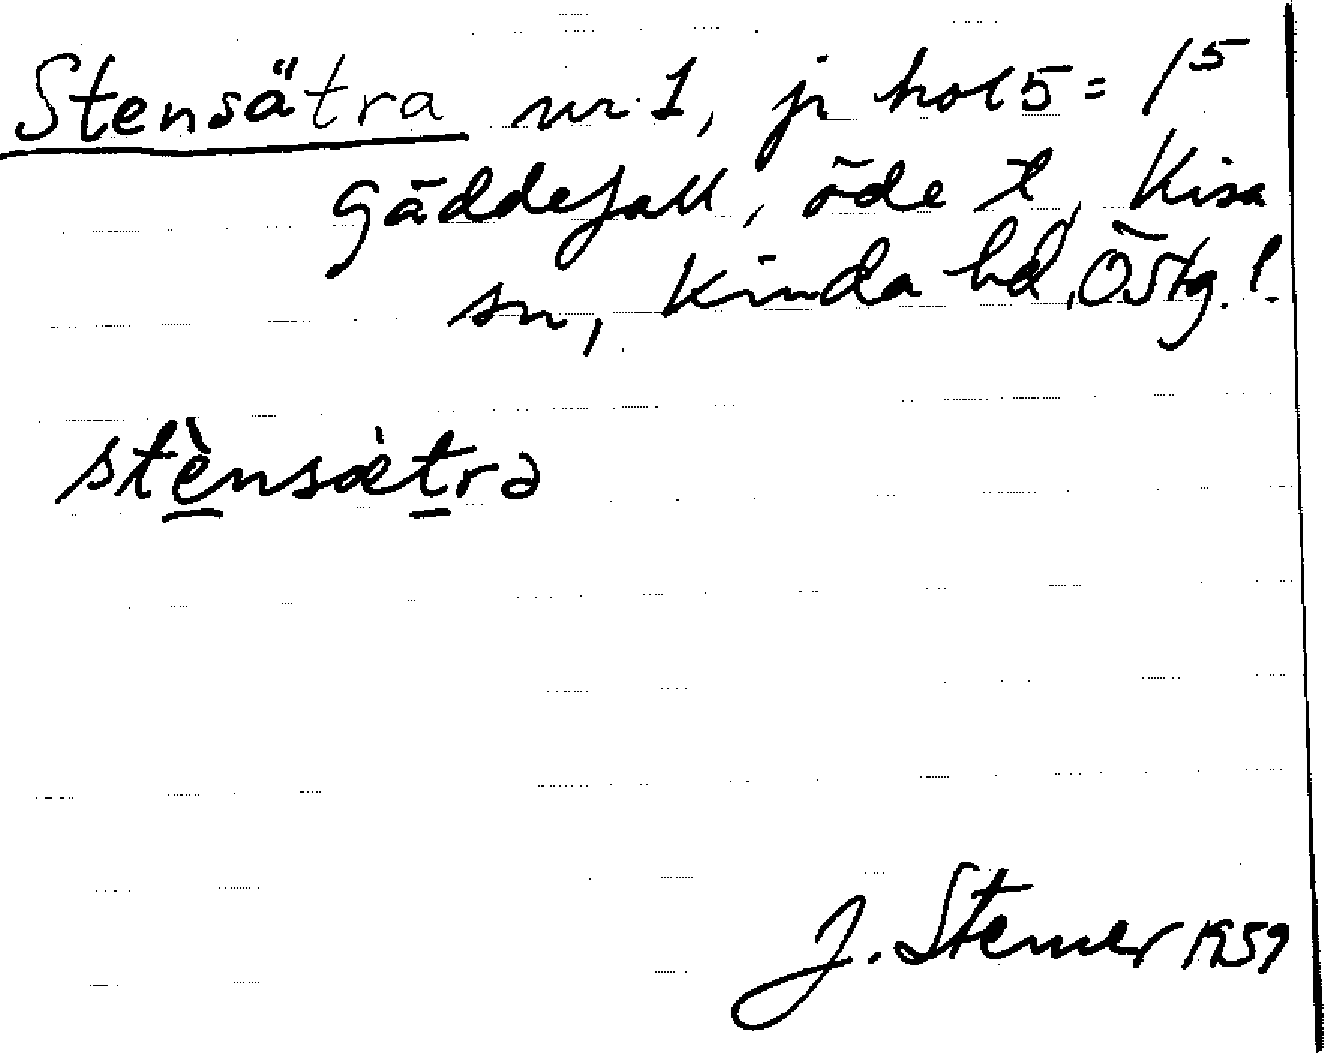 Stensätra nr 1, jr hol 5 = 1⁵
Gäddefall, öde t, Kisa
sn, Kinda hd, Östg. l.
stènsætrə
J. Stemer 1959